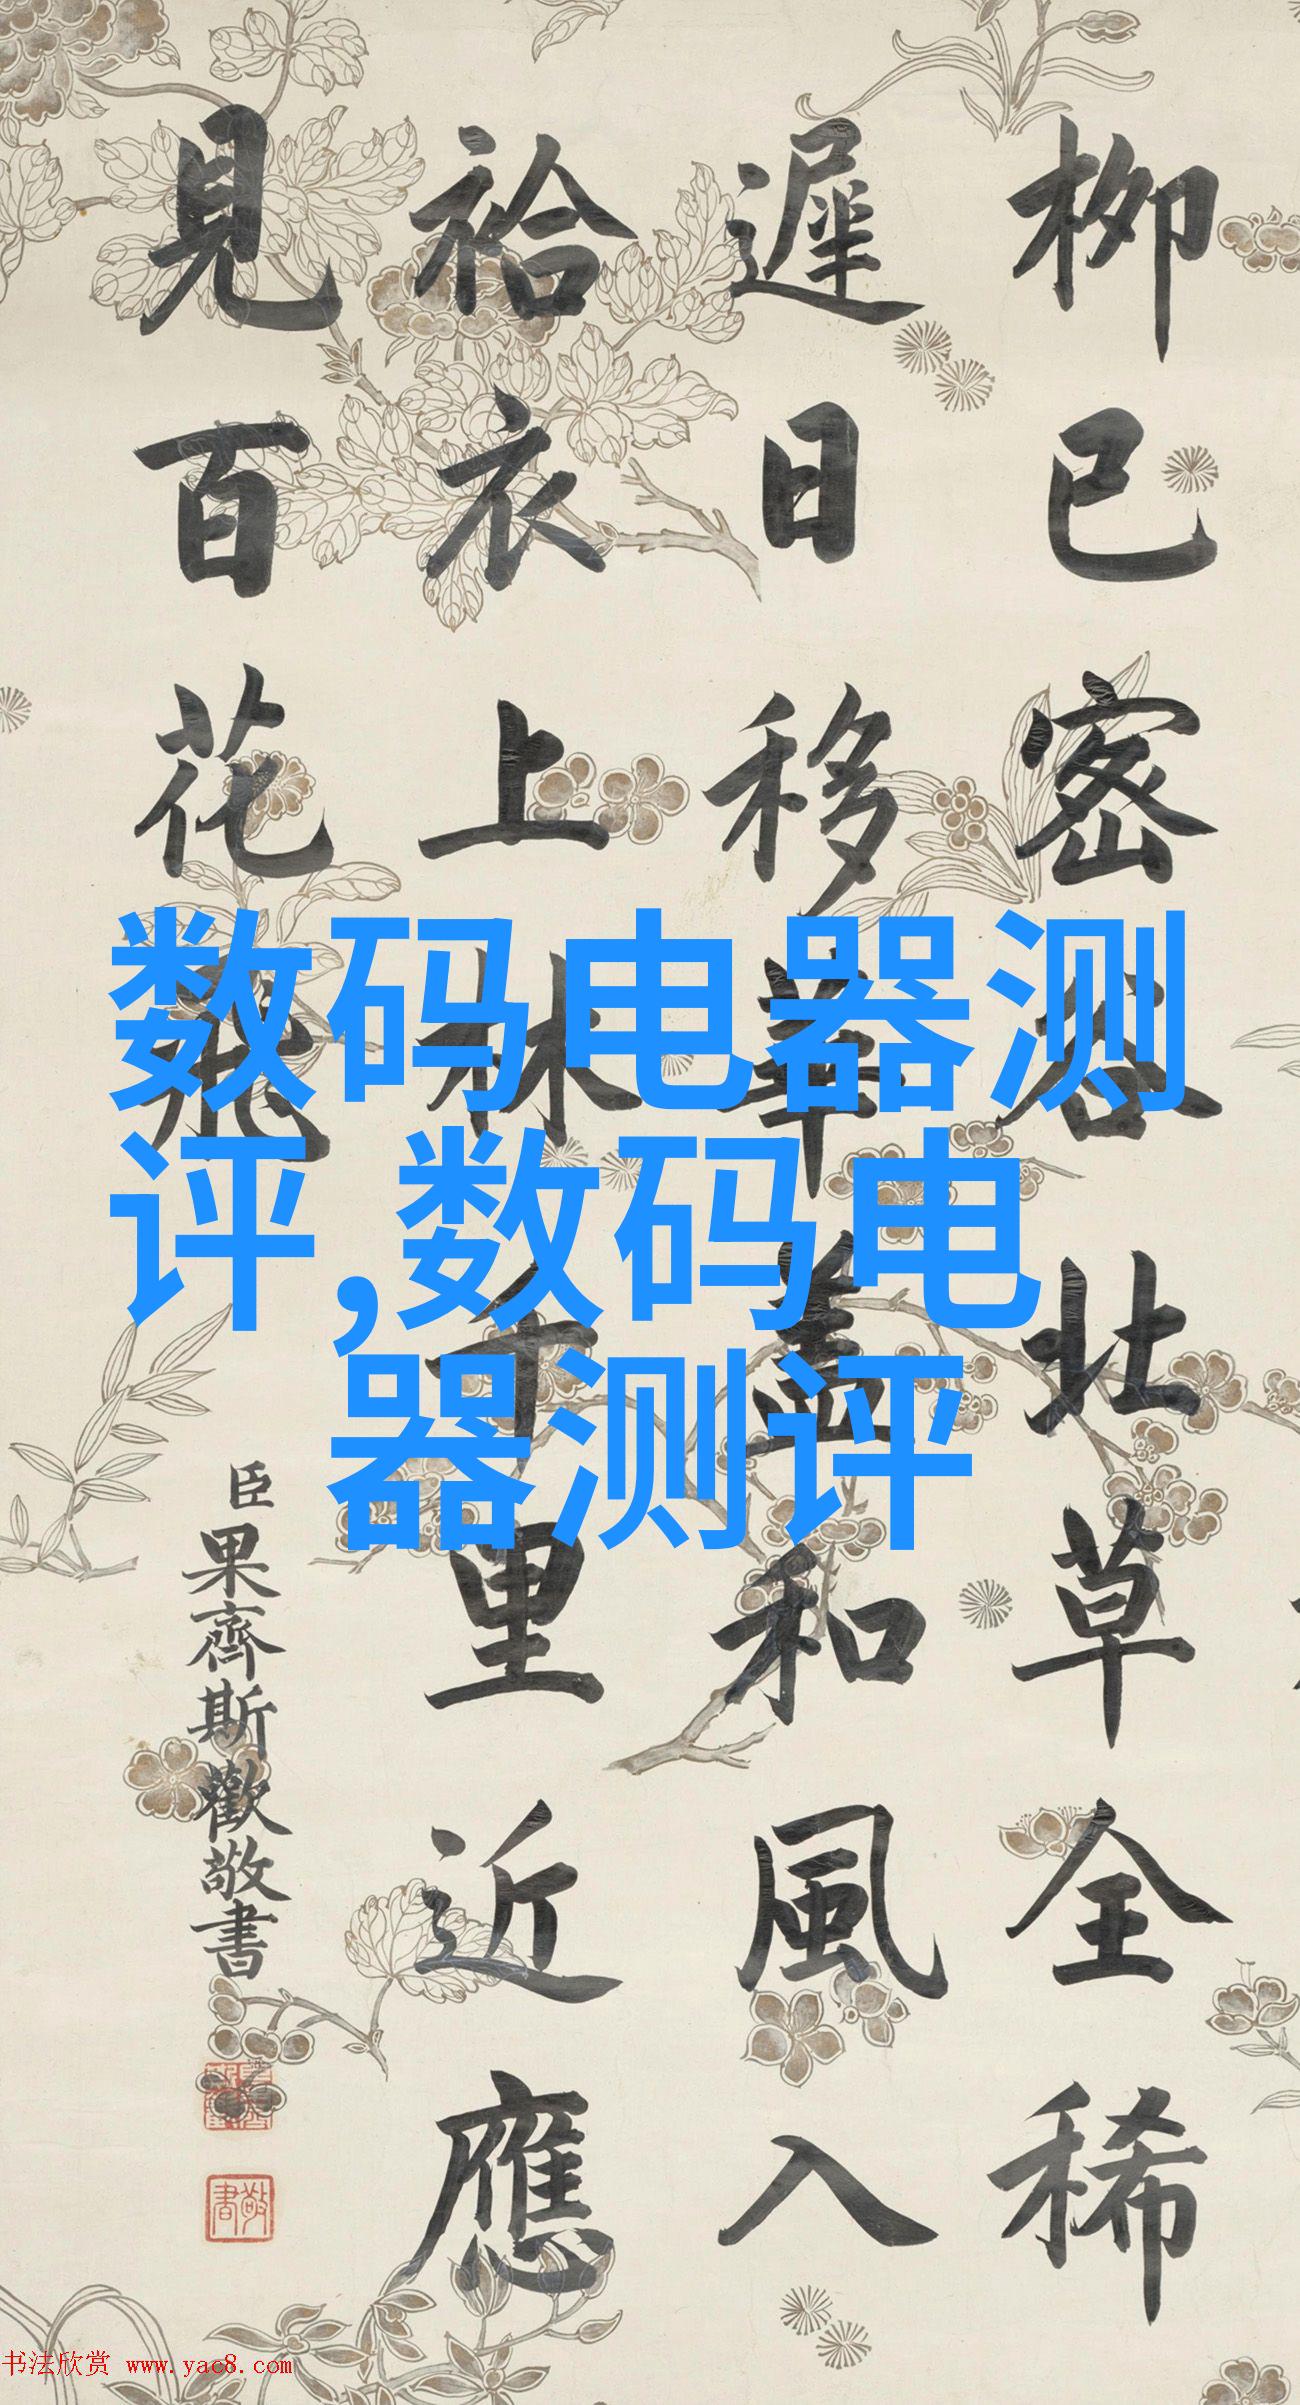 柳已密谷北草全稀
遲日移華蓋和風入
袷衣上林千里近應
見百花飛
臣果齊斯歡敬書
敬書
数码电器测
评,数码电
器测评
书法欣赏 www.yac8.com